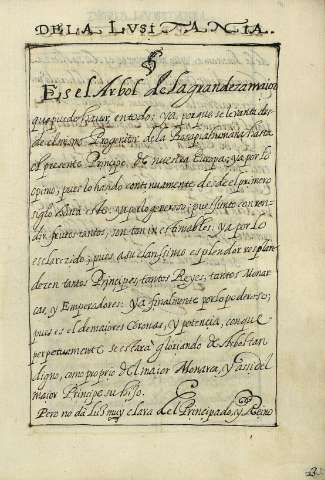 DE LA LUSITANIA.
Es el Arbol de la grandeza maior
que puede hauer, en todo: ya, porque se leuanta des
de el mismo Progenitor de la Prosapia humana, hasta
el presente Principe de nuestra Europa; ya por lo
opimo; pues lo ha sido continuamente desde el primero
siglo hasta este: ya por lo generoso; pues siendo con ren
dir frutos tantos, son tan inestimables: ya por lo
esclarezido; pues a su clarissimo esplendor resplan
dezen tantos Principes, tantos Reyes, tantos Monar
cas, y Emperadores: ya finalmente por lo poderoso;
pues es el de maiores Coronas, y potencia, con que
perpetuamente se estará gloriando de Arbol tan
digno, como proprio del maior Monarca, y assi del
maior Principe su hijo.
Pero no da luz muy clara del Principado, y Reino